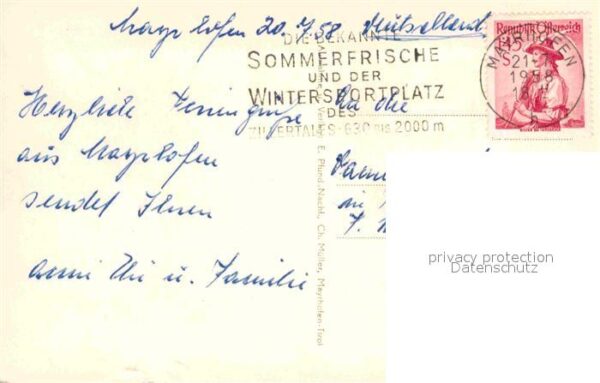 Mayrhofen 20.7.58 Deutschland
DIE BEKANNTE
SOMMERFRISCHE
UND DER
WINTERSPORTPLATZ
DES
ZILLERTALES · 630 BIS 2000 m
Republik Österreich
MAYRHOFEN
21.
1958
18
Herzliche Feriengrüße
aus Mayrhofen
sendet Ihnen
u. Familie
An die
Fam
in
Verlag E. Pfund-Nachf., Ch. Müller, Mayrhofen-Tirol
privacy protection
Datenschutz